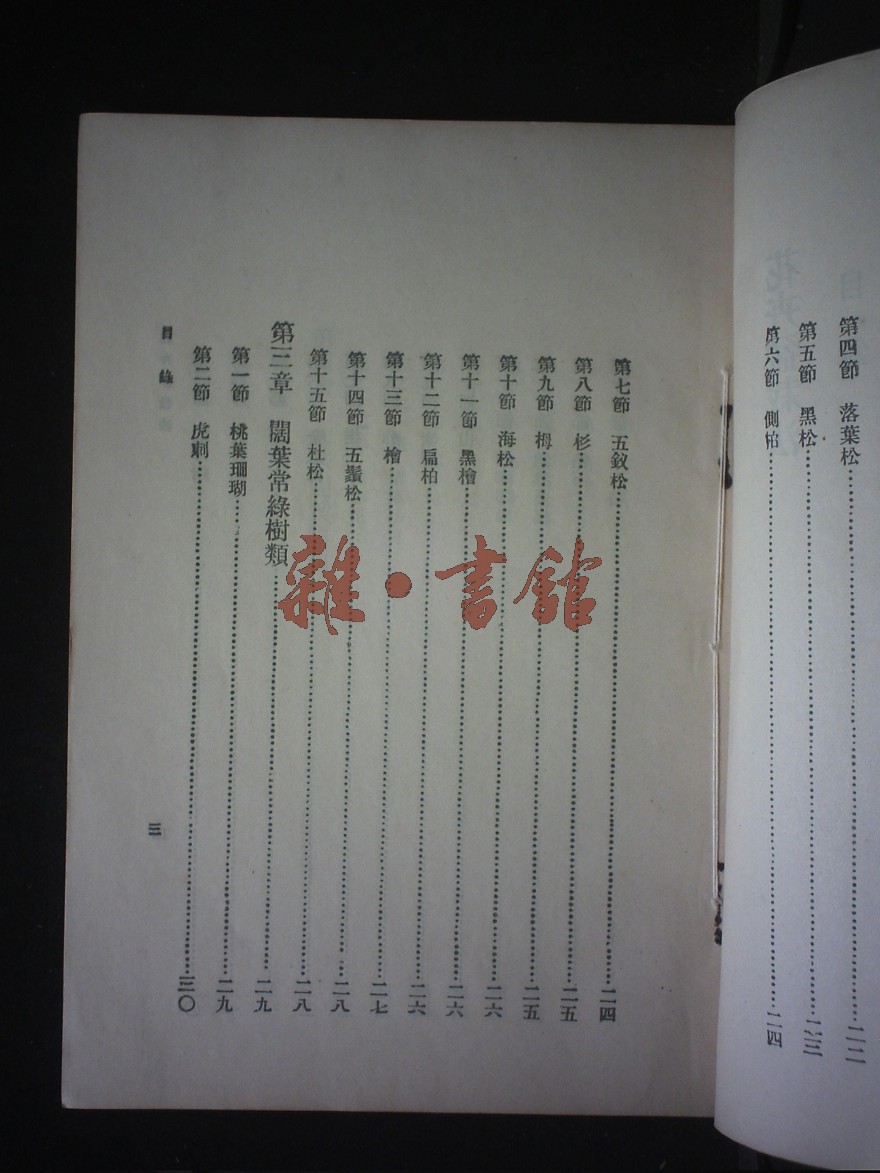 第四節　落葉松
第五節　黑松
第六節　側柏……二四
第七節　五釵松……二四
第八節　杉……二五
第九節　栂……二五
第十節　海松……二六
第十一節　黑檜……二六
第十二節　扁柏……二六
第十三節　檜……二七
第十四節　五鬚松……二八
第十五節　杜松……二八
第三章　闊葉常綠樹類……二九
第一節　桃葉珊瑚……二九
第二節　虎刺……三〇
目錄
三
雜·書館